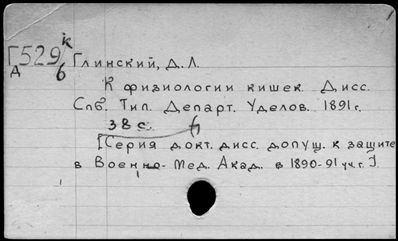 к
Г529
д б
Глинский, Д. Л.
К физиологии кишек. Дисс.
Спб. Тип. Департ. Уделов. 1891 г.
38 с.
[Серия докт. дисс. допущ. к защите
в Военно-Мед. Акад. в 1890-91 уч. г.].